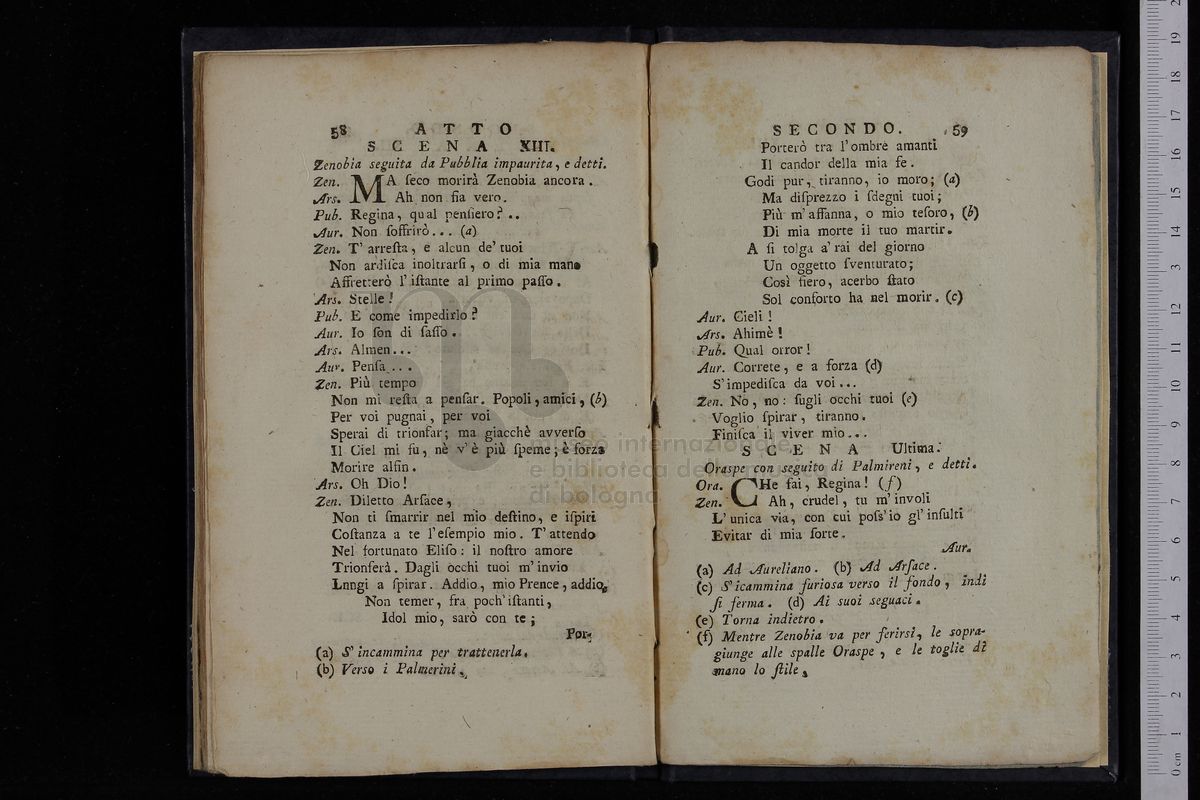 58 ATTO
SCENA XIII.
Zenobia seguita da Pubblia impaurita, e detti.
Zen. MA ſeco morirà Zenobia ancora.
Ars. Ah non ſia vero.
Pub. Regina, qual penſiero?..
Aur. Non ſoffrirò... (a)
Zen. T' arreſta, e alcun de' tuoi
Non ardiſca inoltrarſi, o di mia mano
Affretterò l' iſtante al primo paſſo.
Ars. Stelle!
Pub. E come impedirlo?
Aur. Io ſon di ſaſſo.
Ars. Almen...
Aur. Penſa...
Zen. Più tempo
Non mi reſta a penſar. Popoli, amici, (b)
Per voi pugnai, per voi
Sperai di trionfar; ma giacchè avverſo
Il Ciel mi fu, nè v' è più ſpeme; è forza
Morire alfin.
Ars. Oh Dio!
Zen. Diletto Arſace,
Non ti ſmarrir nel mio deſtino, e iſpiri
Coſtanza a te l' eſempio mio. T' attendo
Nel fortunato Eliſo: il noſtro amore
Trionferà. Dagli occhi tuoi m' invio
Lnngi a ſpirar. Addio, mio Prence, addio,
Non temer, fra poch' iſtanti,
Idol mio, sarò con te;
Por-
(a) S' incammina per trattenerla.
(b) Verso i Palmerini.
SECONDO. 59
Porterò tra l' ombre amanti
Il candor della mia fe.
Godi pur, tiranno, io moro; (a)
Ma diſprezzo i ſdegni tuoi;
Più m' affanna, o mio teſoro, (b)
Di mia morte il tuo martir.
A ſi tolga a' rai del giorno
Un oggetto ſventurato;
Così fiero, acerbo ſtato
Sol conforto ha nel morir. (c)
Aur. Cieli!
Ars. Ahimè!
Pub. Qual orror!
Aur. Correte, e a forza (d)
S' impediſca da voi...
Zen. No, no: ſugli occhi tuoi (e)
Voglio ſpirar, tiranno.
Finiſca il viver mio...
SCENA Ultima.
Oraspe con seguito di Palmireni, e detti.
Ora. CHe fai, Regina! (f)
Zen. Ah, crudel, tu m' involi
L' unica via, con cui poſs' io gl' inſulti
Evitar di mia ſorte.
Aur.
(a) Ad Aureliano. (b) Ad Arſace.
(c) S' icammina furiosa verso il fondo, indi
ſi ferma. (d) Ai suoi seguaci.
(e) Torna indietro.
(f) Mentre Zenobia va per ferirsi, le sopra-
giunge alle spalle Oraspe, e le toglie di
mano lo ſtile,
museo internazionale
e biblioteca della musica
di bologna